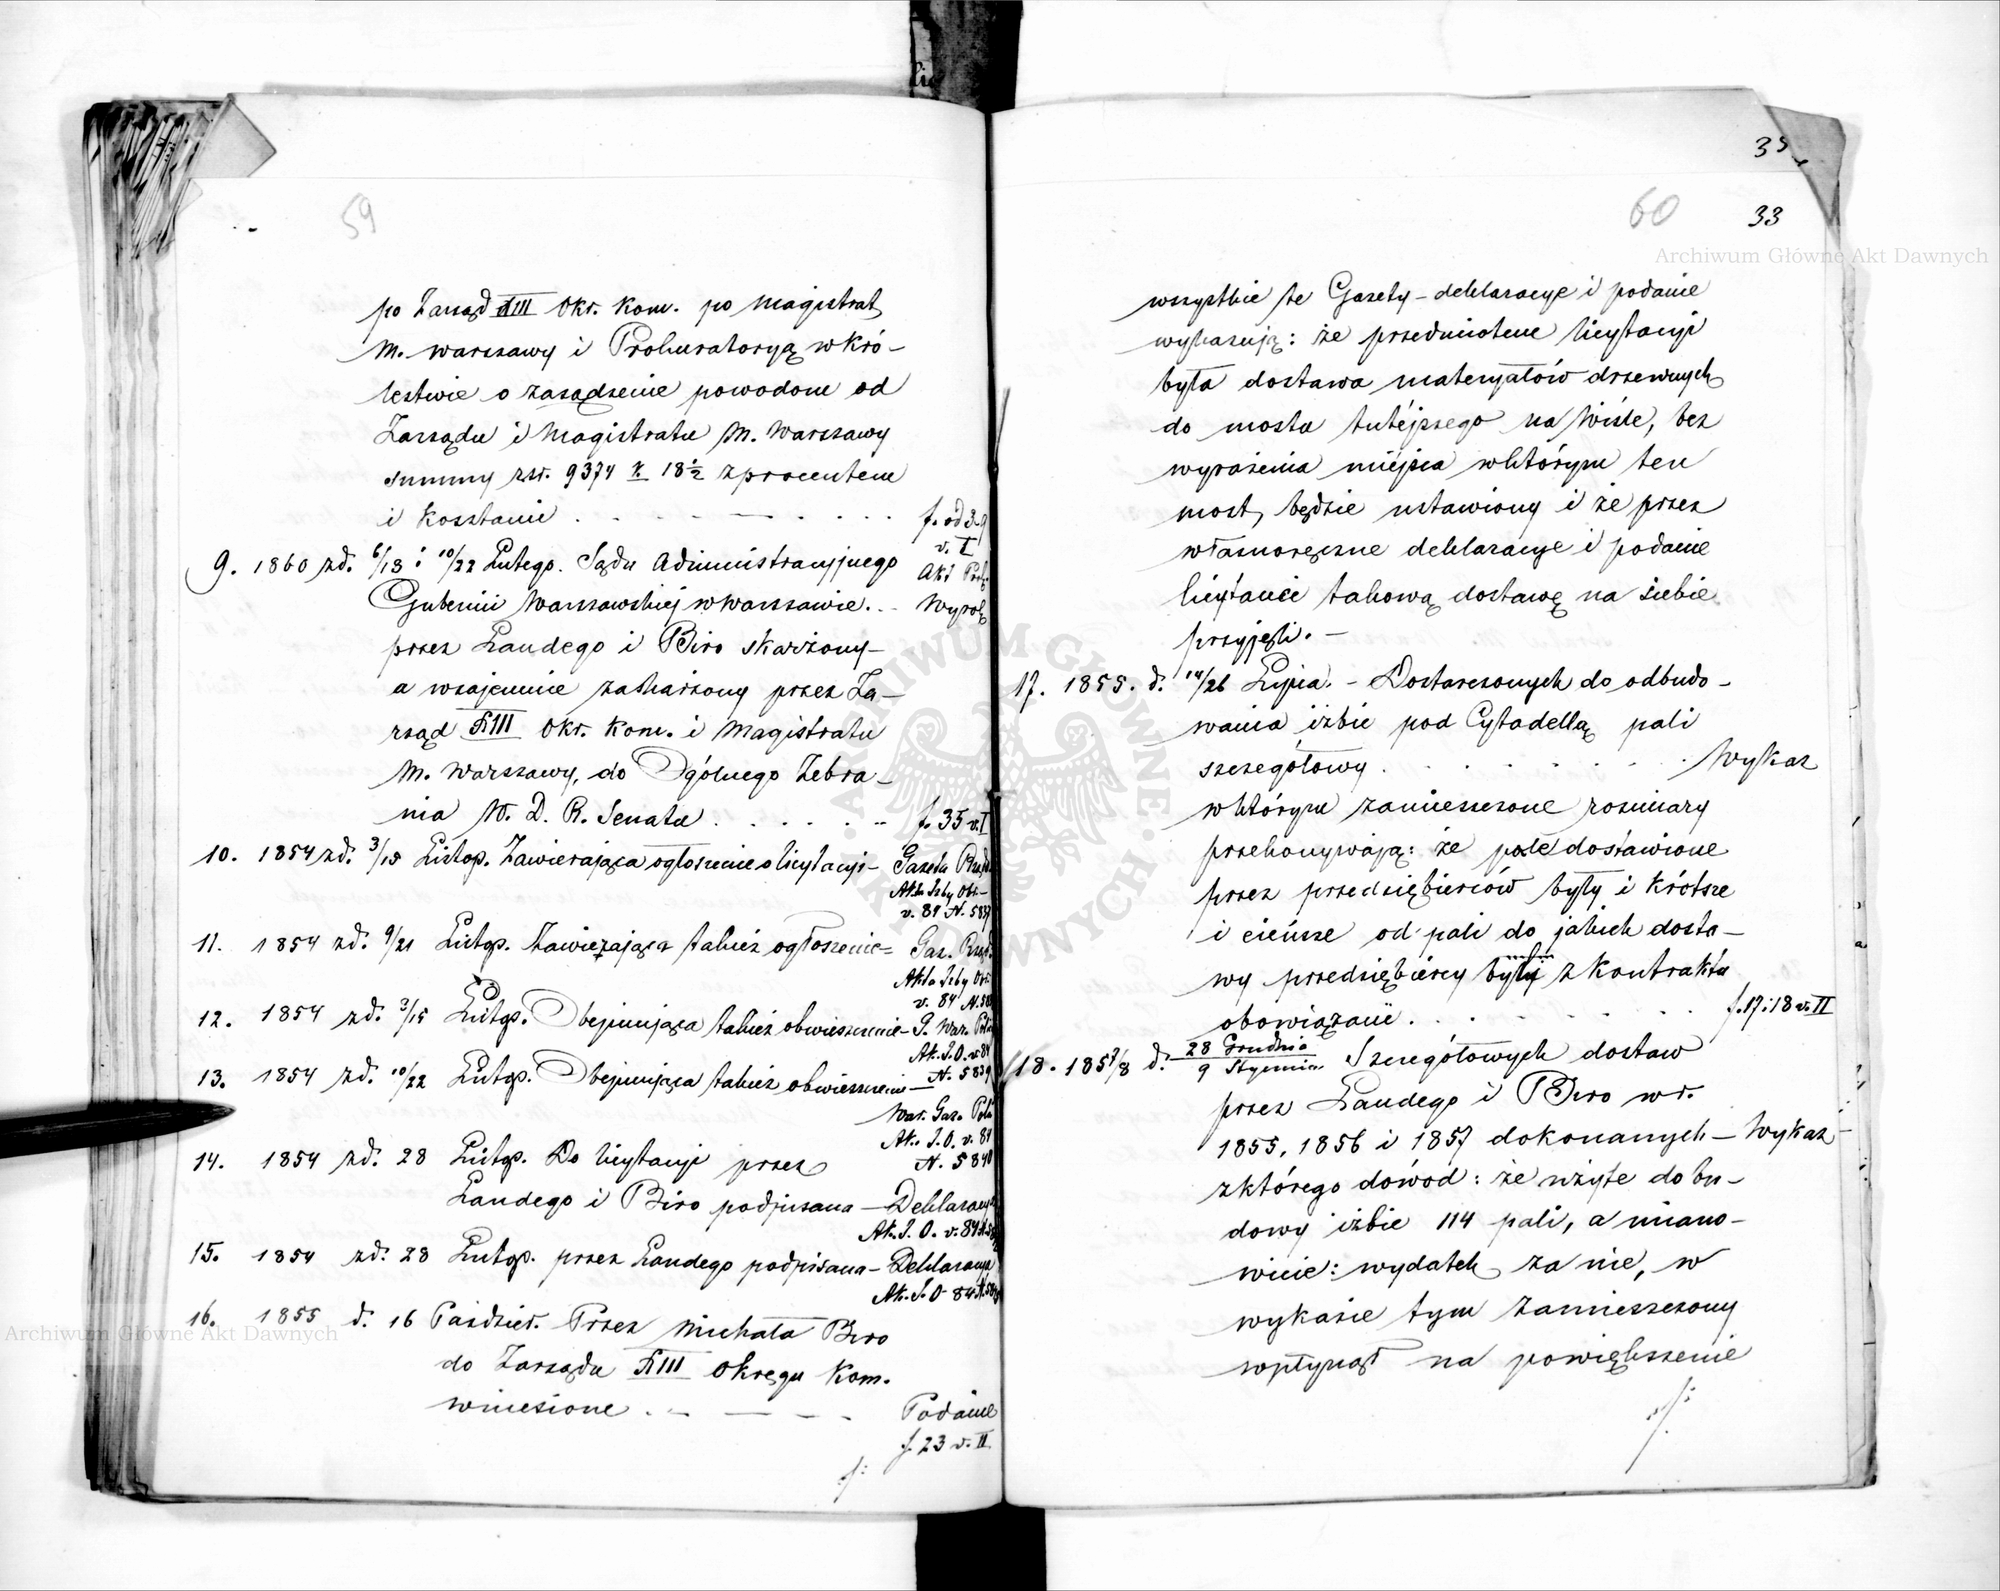 59
po Zarząd XIII Okr. Kom. po Magistrat
M. Warszawy i Prokuratoryą w Kró-
lestwie o zasądzenie powodom od
Zarządu i Magistratu M. Warszawy
summy rsr. 9374 k. 18½ z procentem
i kosztami . . . — . . . f. od 3-9
v. I
9. 1860 zd. 6/18 i 10/22 Lutego. Sądu Administracyjnego Akt
Gubernii Warszawskiej w Warszawie . . Wyrok
przez Landego i Biro skarżony-
a wzajemnie zaskarżony przez Za-
rząd XIII Okr. Kom. i Magistratu
M. Warszawy, do Ogólnego Zebra-
nia W. D. R. Senatu . . . . . f. 35 v. I
10. 1854 zd. 3/15 Listop. Zawierająca ogłoszenie o licytacyi- Gazeta
v. 84 N. 5837
11. 1854 zd. 9/21 Listop. Zawierająca takież ogłoszenie= Gaz.
v. 84
12. 1854 zd. 3/15 Listop. Obejmująca takież obwieszczenie- G. War. Poli
Ak. I. O. v. 84
N. 5839
13. 1854 zd. 10/22 Listop. Obejmująca takież obwieszczenie—
War. Gaz. Poli
Ak. I. O. v. 84
N. 5840
14. 1854 zd. 28 Listop. Do licytacyi przez
Landego i Biro podpisana — Deklaracya
Ak. I. O. v. 84
15. 1854 zd. 28 Listop. przez Landego podpisana — Deklaracya
Ak. I. O. 84
16. 1855 d. 16 Paździer. Przez Michała Biro
do Zarządu XIII Okręgu Kom.
wniesione . — — — . Podanie
f. 23 v. II
60 33
wszystkie te Gazety - deklaracye i podanie
wykazują: że przedmiotem licytacyi
była dostawa materyałów drzewnych
do mostu tutéjszego na Wiśle, bez
wyrażenia miejsca w którym ten
most, będzie ustawiony i że przez
własnoręczne deklaracye i podanie
licytanci takową dostawę na siebie
przyjęli. —
17. 1855. d. 14/26 Lipca. - Dostarczonych do odbudo-
wania izbic pod Cytadellą pali
szczegółowy . . . . . . . Wykaz
w którym zamieszczone rozmiary
przekonywają: że pale dostawione
przez przedsiębierców były i krótsze
i cieńsze od pali do jakich dosta-
wy przedsiębiercy byli z kontraktu
obowiązani . . . . . . f. 17 i 18 v. II
18. 1857/8 d. 28 Grudnia / 9 Stycznia Szczegółowych dostaw
przez Landego i Biro w r.
1855, 1856 i 1857 dokonanych — Wykaz
z którego dowód: że użyte do bu-
dowy izbic 114 pali, a miano-
wicie: wydatek za nie, w
wykazie tym zamieszczony
wpłynął na powiększenie
Archiwum Główne Akt Dawnych
Archiwum Główne Akt Dawnych
ARCHIWUM GŁÓWNE AKT DAWNYCH